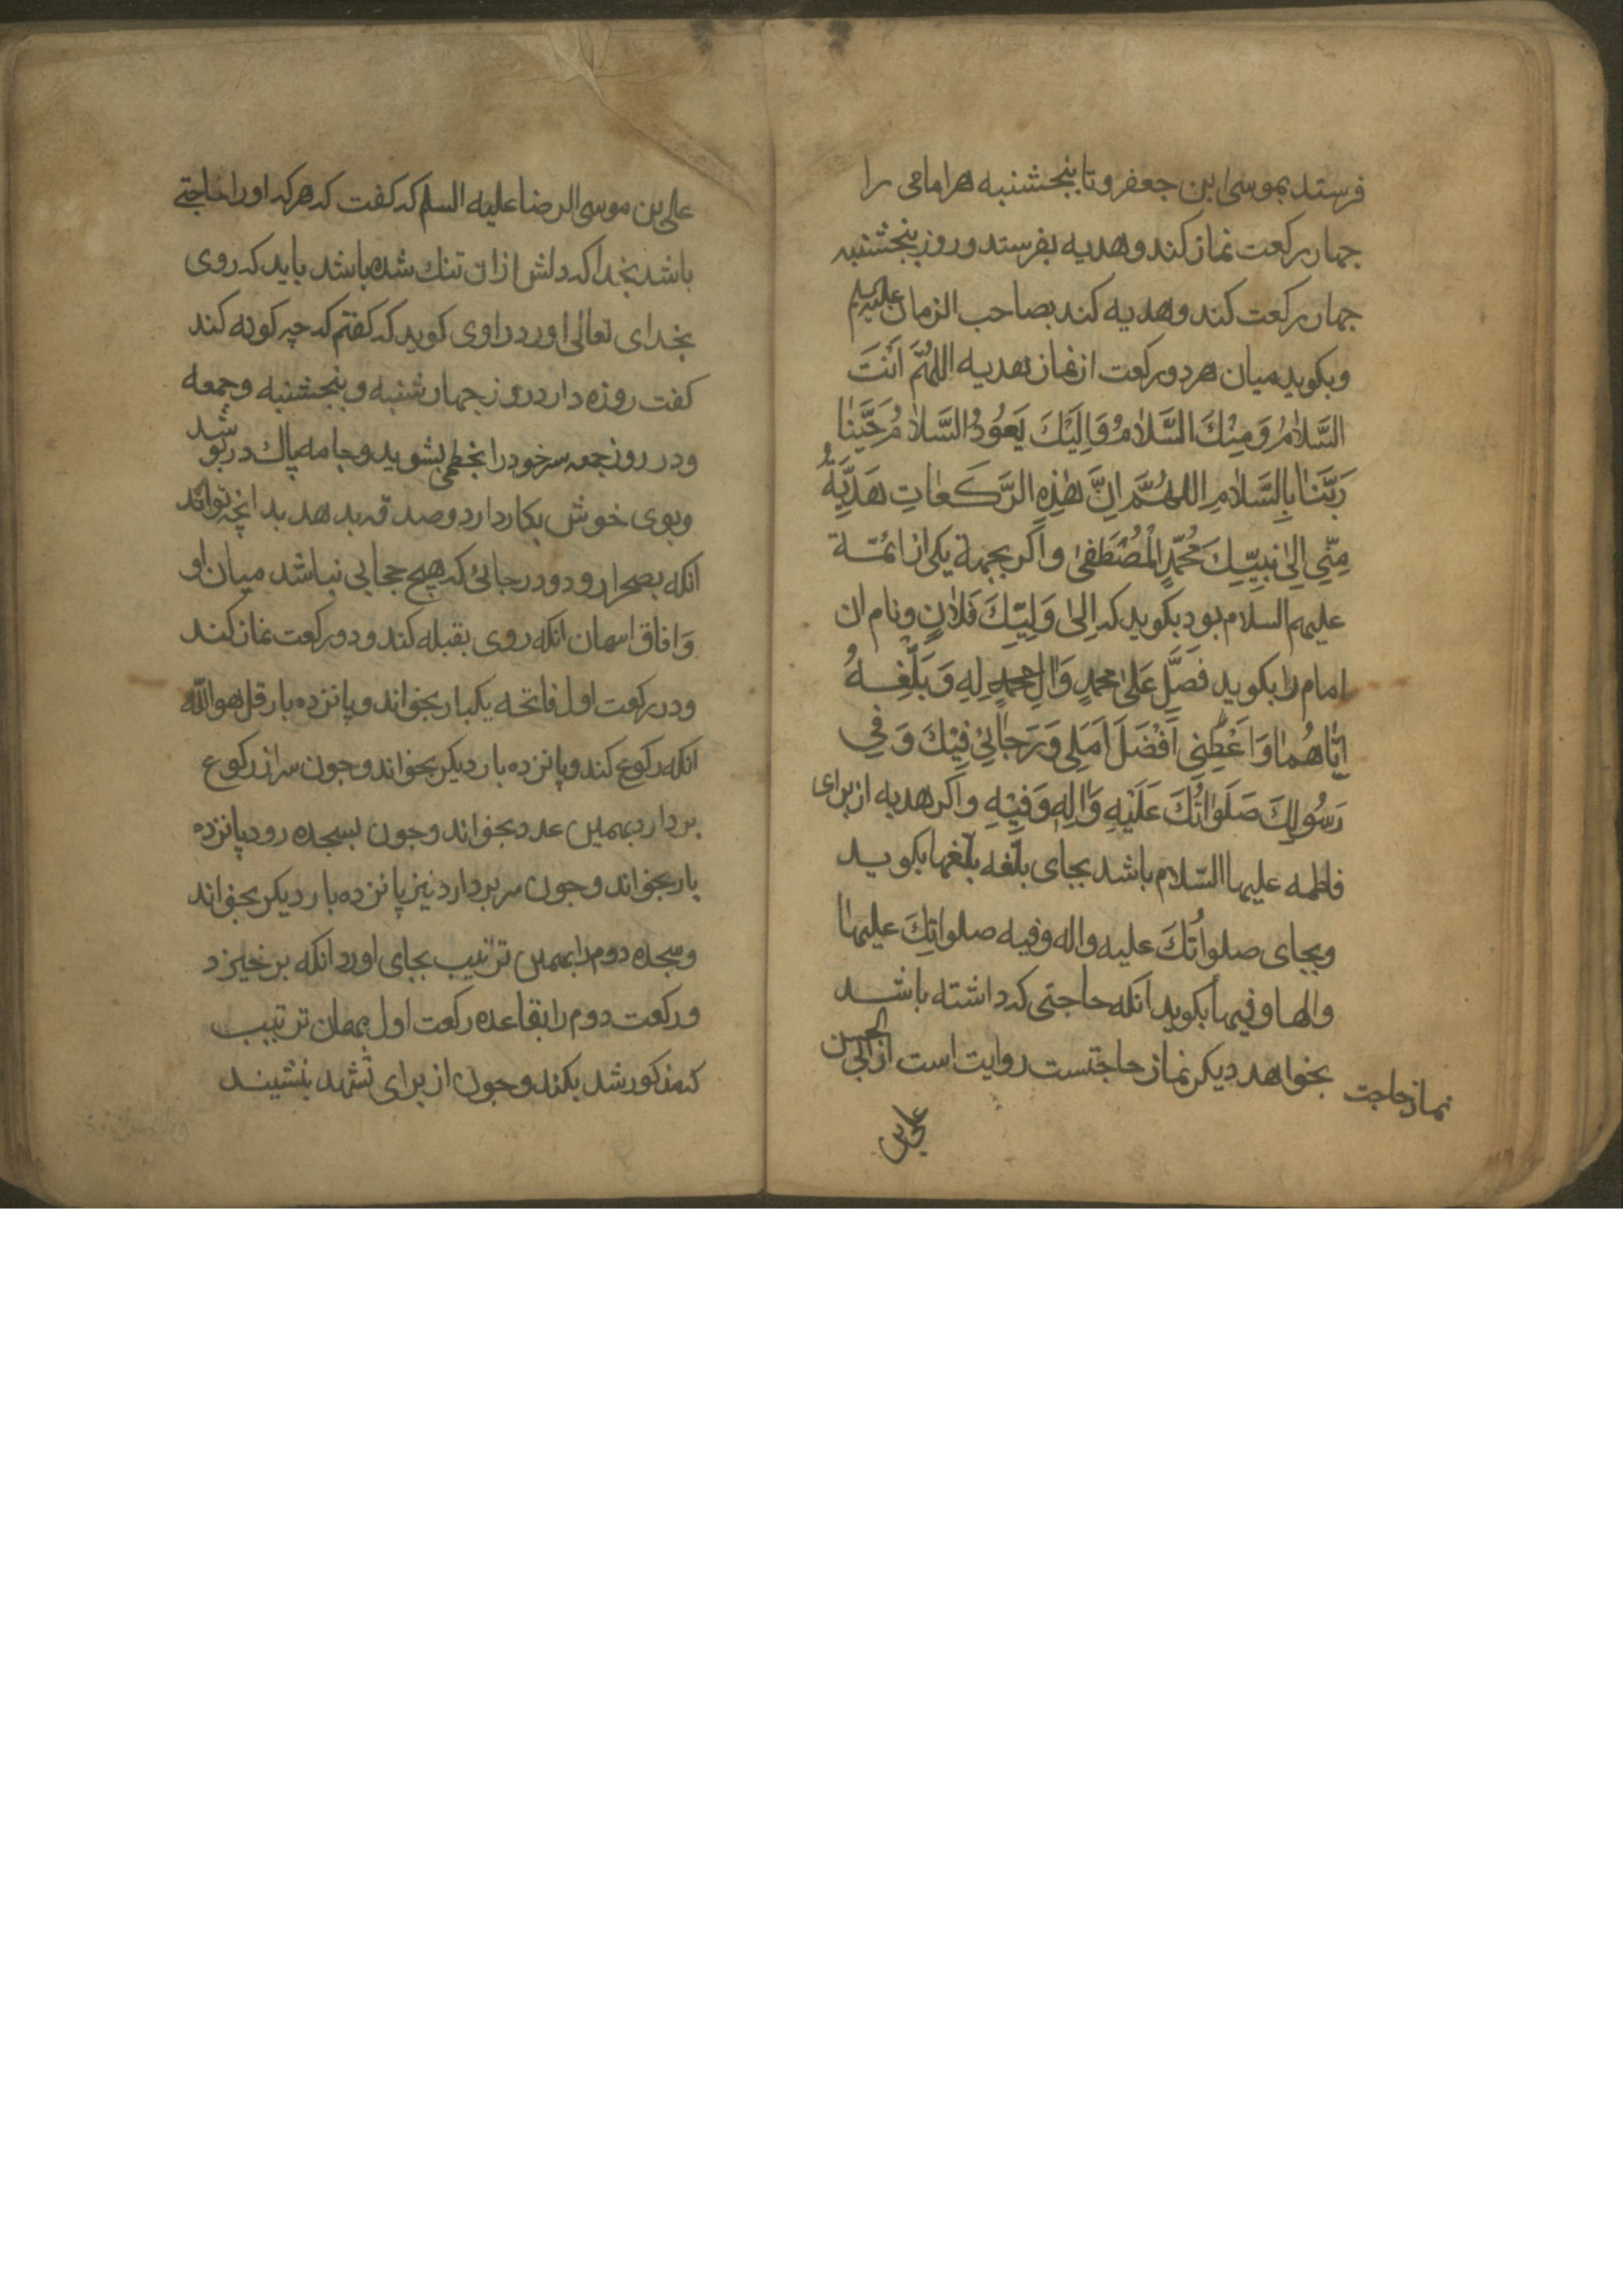 فرستد بموسی ابن جعفر و تا پنجشنبه هر امامی را
جهار رکعت نماز کند و هدیه بفرستد و روز پنجشنبه
جهار رکعت کند و هدیه کند بصاحب الزمان علیه السلم
و بکوید میان هر دو رکعت از نماز هدیه اللهُمَّ اَنْتَ
السَّلامُ وَمِنْكَ السَّلامُ وَاِلَيْكَ يَعُوْدُ السَّلامُ حَيِّنَا
رَبَّنَا بِالسَّلامِ اللهُمَّ اِنَّ هٰذِهِ الرَّكَعَاتِ هَدِيَّةٌ
مِنِّي اِلىٰ نَبِيِّكَ مُحَمَّدٍ الْمُصْطَفىٰ و اکر بجهة یکی از ائمّة
علیهم السلام بود بکوید که اِلىٰ وَلِيِّكَ فَلَانٍ و نام ان
امام را بکوید فَصَلِّ عَلىٰ محمدٍ وَاٰلِ محمدٍ لِهِ وَبَلِّغْهُ
اِيَّاهُمَا وَاَعْطِنِي اَفْضَلَ اَمَلِي وَرَجَائِي فِيْكَ وَفِي
رَسُولِكَ صَلَوَاتُكَ عَلَيْهِ وَاٰلِهِ وَفِيْهِ و اکر هدیه از برای
فاطمه علیها السّلام باشد بجای بلّغه بلّغها بکوید
و بجای صلواتُكَ علیه و اله و فیه صلواتِكَ علیها
و الها و فیها بکوید انکه حاجتی که داشته باشد
بخواهد دیکر نماز حاجتست روایت است از ابی الحسن
نماز حاجت
علی بن
علی بن موسی الرضا علیه السلم که کفت که هرکه او را حاجتی
باشد بخدا که دلش از ان تنك شده باشد باید که روی
بخدای تعالی اورد راوی کوید که کفتم که چه کونه کند
کفت روزه دارد روز جهارشنبه و پنجشنبه و جمعه
و در روز جمعه سر خود را بخطمی بشوید و جامه پاك در پوشد
و بوی خوش بکار دارد و صدقه بدهد بدانچه تواند
انکه بصحرا رود و در جائی که هیچ حجابی نباشد میان او
وَ افاق اسمان انکه روی بقبله کند و دو رکعت نماز کند
و در رکعت اول فاتحه یکبار بخواند و پانزده بار قل هو الله
انکه رکوع کند و پانزده بار دیکر بخواند و جون سر از رکوع
بردارد بهمین عدد بخواند و جون بسجده رود پانزده
بار بخواند و جون سر بردارد نیز پانزده بار دیکر بخواند
و سجده دوم را بهمین ترتیب بجای اورد انکه برخیزد
و رکعت دوم را بقاعده رکعت اول بهمان ترتیب
که مذکور شد بکند و جون از برای تشهد بنشیند